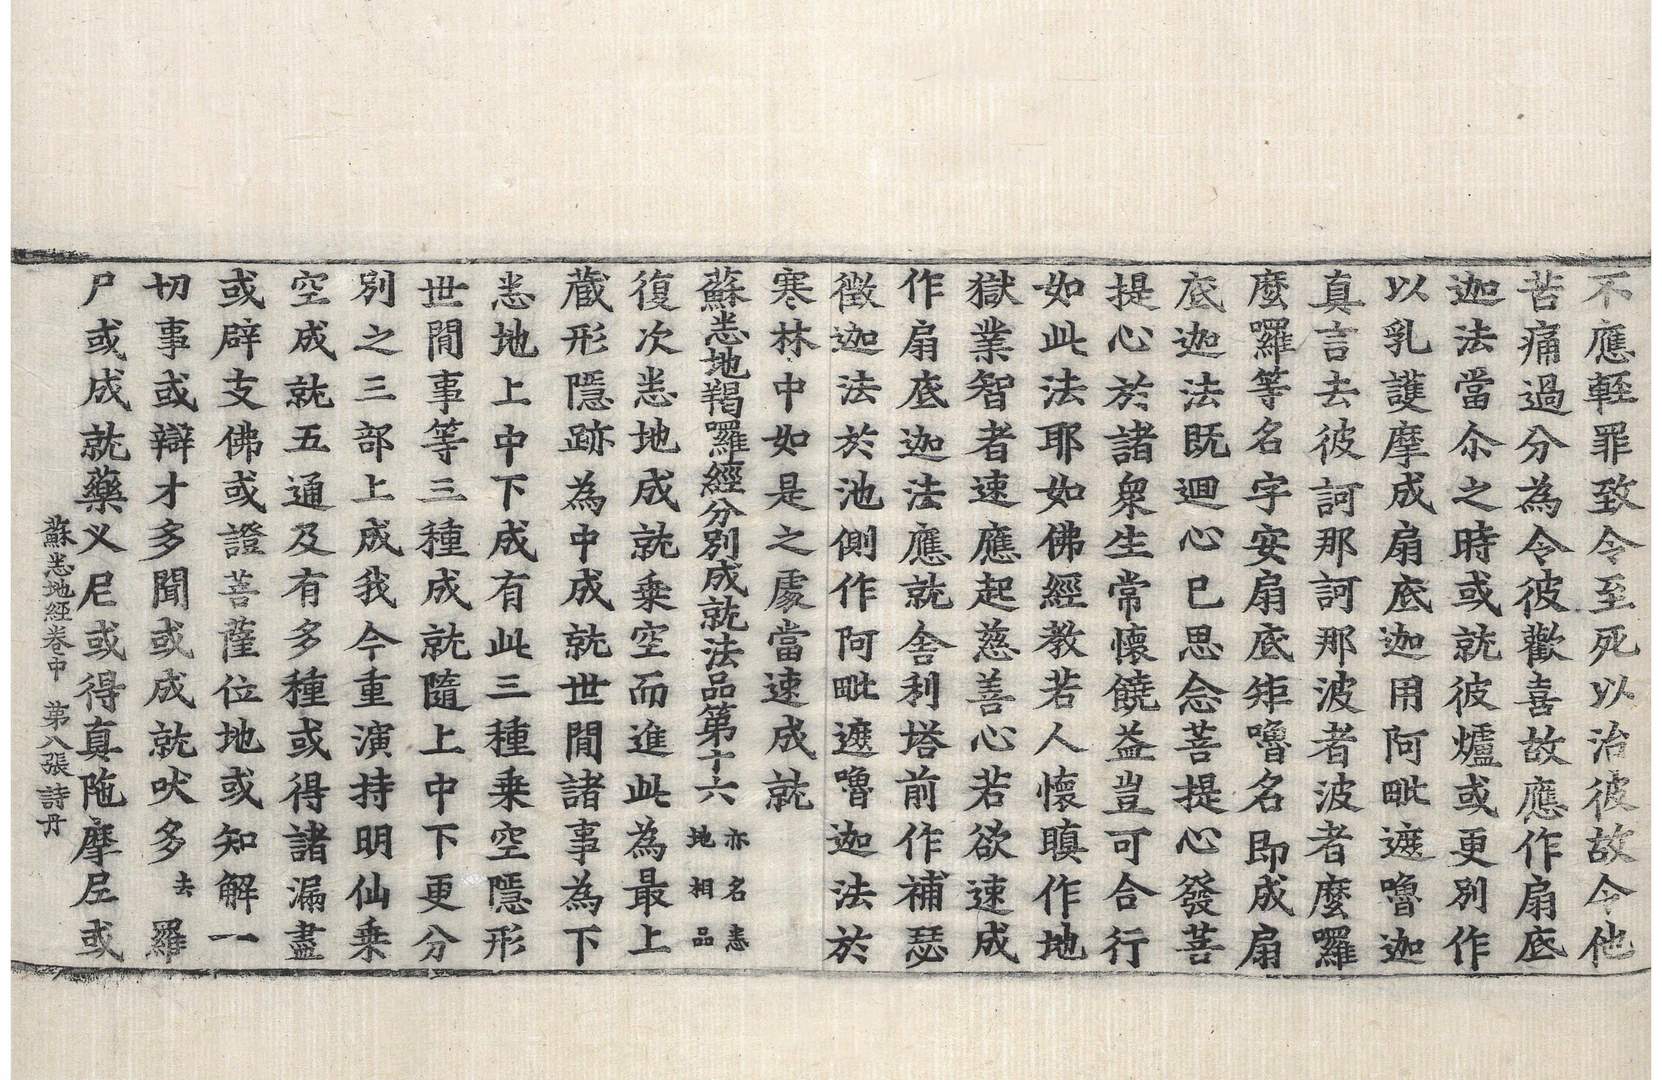 不應輕罪致令至死以治彼故令他
苦痛過分為令彼歡喜故應作扇底
迦法當尒之時或就彼爐或更別作
以乳護摩成扇底迦用阿毗遮嚕迦
真言去彼訶那訶那波者波者麼囉
麼囉等名字安扇底矩嚕名即成扇
底迦法既迴心已思念菩提心發菩
提心於諸衆生常懷饒益豈可合行
如此法耶如佛經教若人懷瞋作地
獄業智者速應起慈善心若欲速成
作扇底迦法應就舍利塔前作補瑟
徵迦法於池側作阿毗遮嚕迦法於
寒林中如是之處當速成就
蘇悉地羯囉經分別成就法品第十六 亦名悉
地相品
復次悉地成就乗空而進此為最上
藏形隱跡為中成就世間諸事為下
悉地上中下成有此三種乗空隱形
世間事等三種成就隨上中下更分
別之三部上成我今重演持明仙乗
空成就五通及有多種或得諸漏盡
或辟支佛或證菩薩位地或知解一
切事或辯才多聞或成就吠多去羅
尸或成就藥义尼或得真陁摩尼或
蘇悉地經卷中　第八張　詩丹